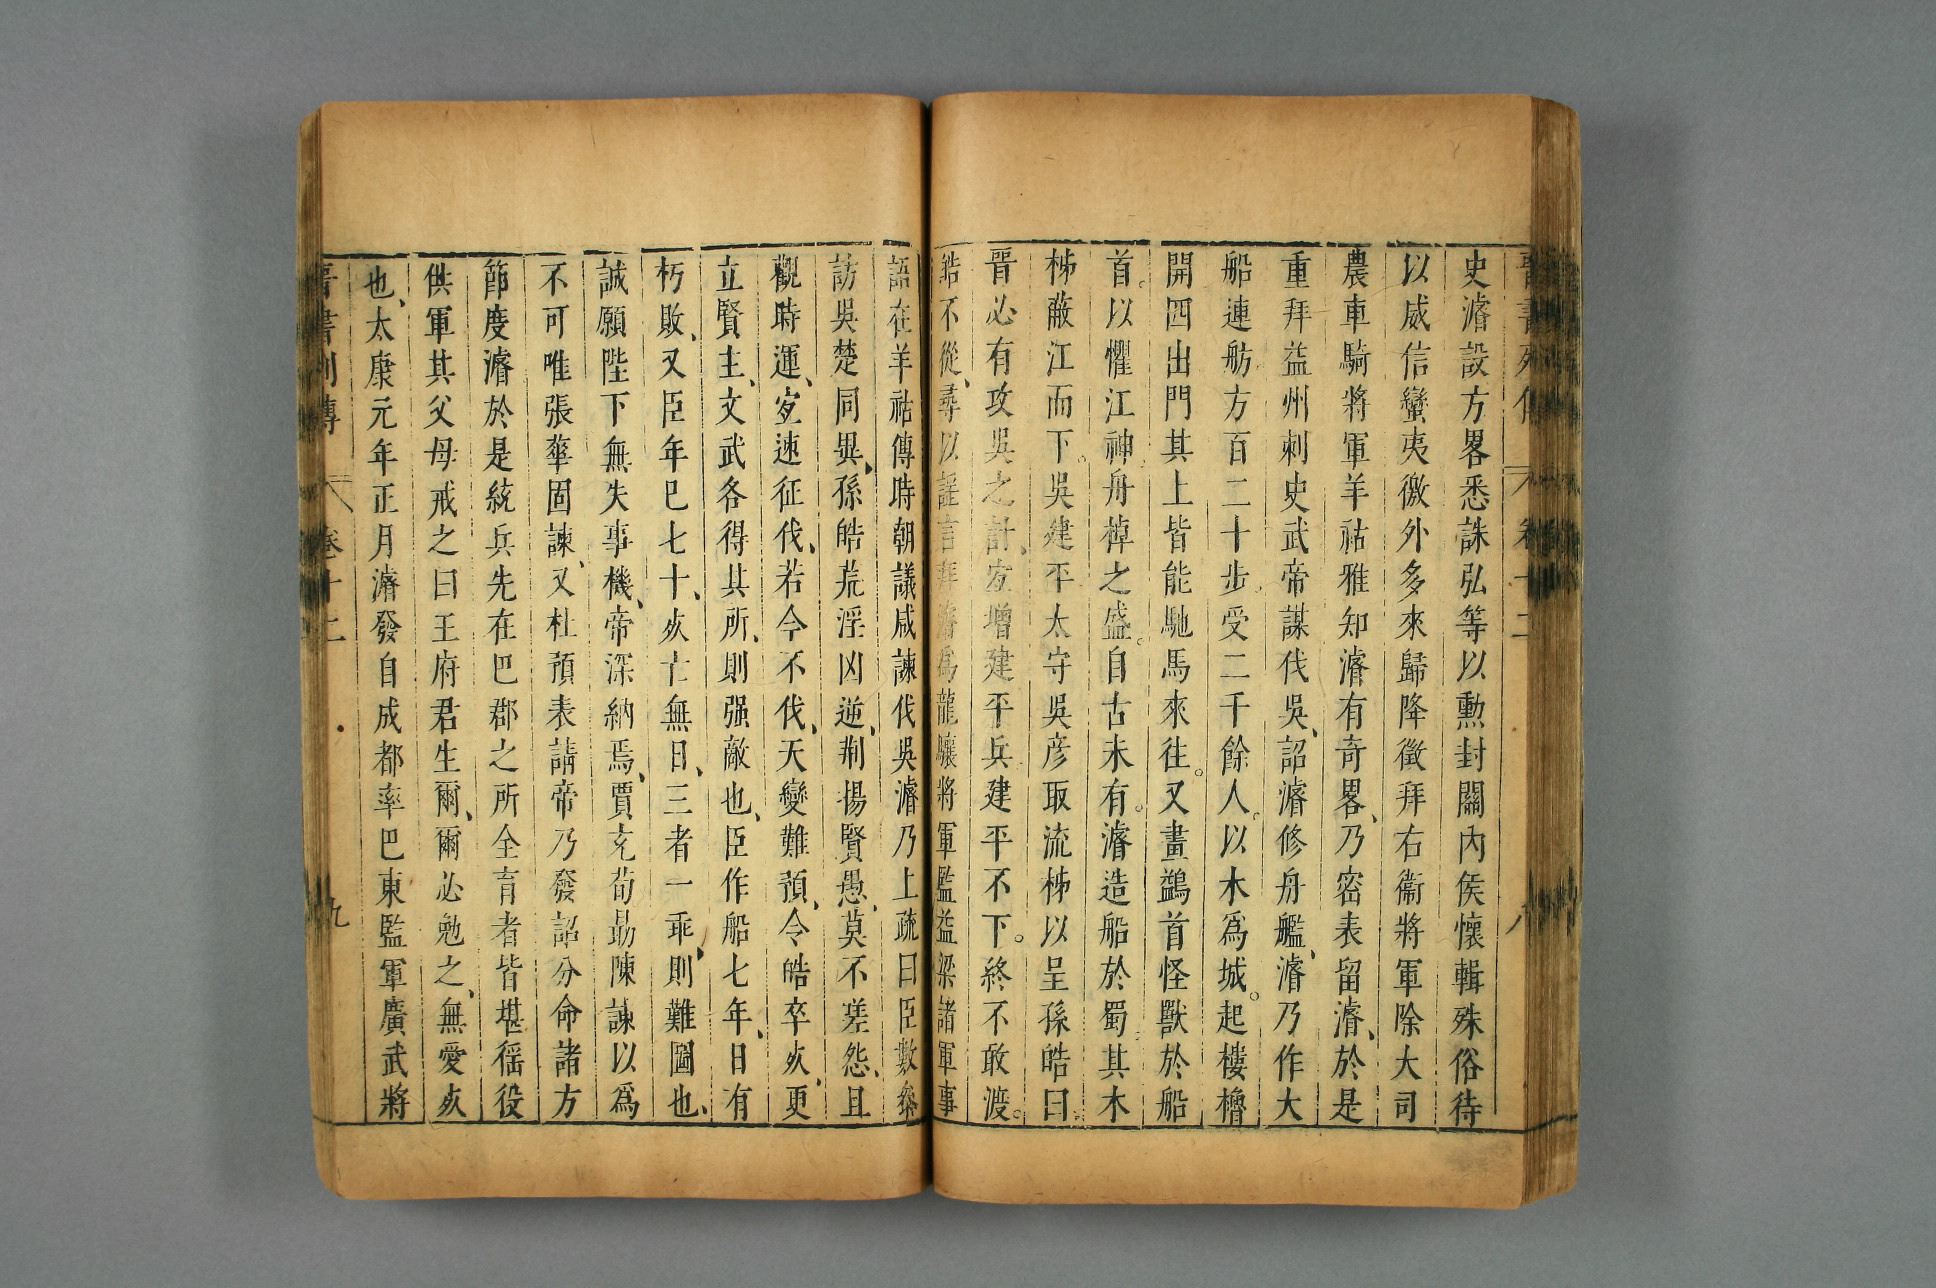 晉書列傳 卷十二 八
史濬設方畧悉誅弘等以勲封關內侯懷輯殊俗待
以威信蠻夷徼外多來歸降徵拜右衞將軍除大司
農車騎將軍羊祜雅知濬有奇畧、乃密表留濬、於是
重拜益州刺史武帝謀伐吳、詔濬修舟艦、濬乃作大
船連舫方百二十步。受二千餘人。以木爲城。起樓櫓
開四出門其上皆能馳馬來往。又畫鷁首怪獸於船
首。以懼江神。舟棹之盛。自古未有。濬造船於蜀其木
柹蔽江而下。吳建平太守吳彦取流柹以呈孫皓曰。
晉必有攻吳之計、宐增建平兵建平不下。終不敢渡。
皓不從、尋以謡言拜濬爲龍驤將軍監益梁諸軍事
語在羊祜傳時朝議咸諫伐吳濬乃上疏曰臣數叅
訪吳楚同異、孫皓荒淫凶逆、荆揚賢愚、莫不嗟怨、且
觀時運、宐速征伐、若今不伐、天變難預、令皓卒死、更
立賢主、文武各得其所、則强敵也、臣作船七年、日有
朽敗、又臣年已七十、死亡無日、三者一乖、則難圖也、
誠願陛下無失事機、帝深納焉、賈充荀勗陳諫以爲
不可唯張華固諫、又杜預表請帝乃發詔分命諸方
節度濬於是統兵先在巴郡之所全育者皆堪徭役
供軍其父母戒之曰王府君生爾、爾必勉之、無愛死
也、太康元年正月濬發自成都率巴東監軍廣武將
晉書列傳 卷十二 九